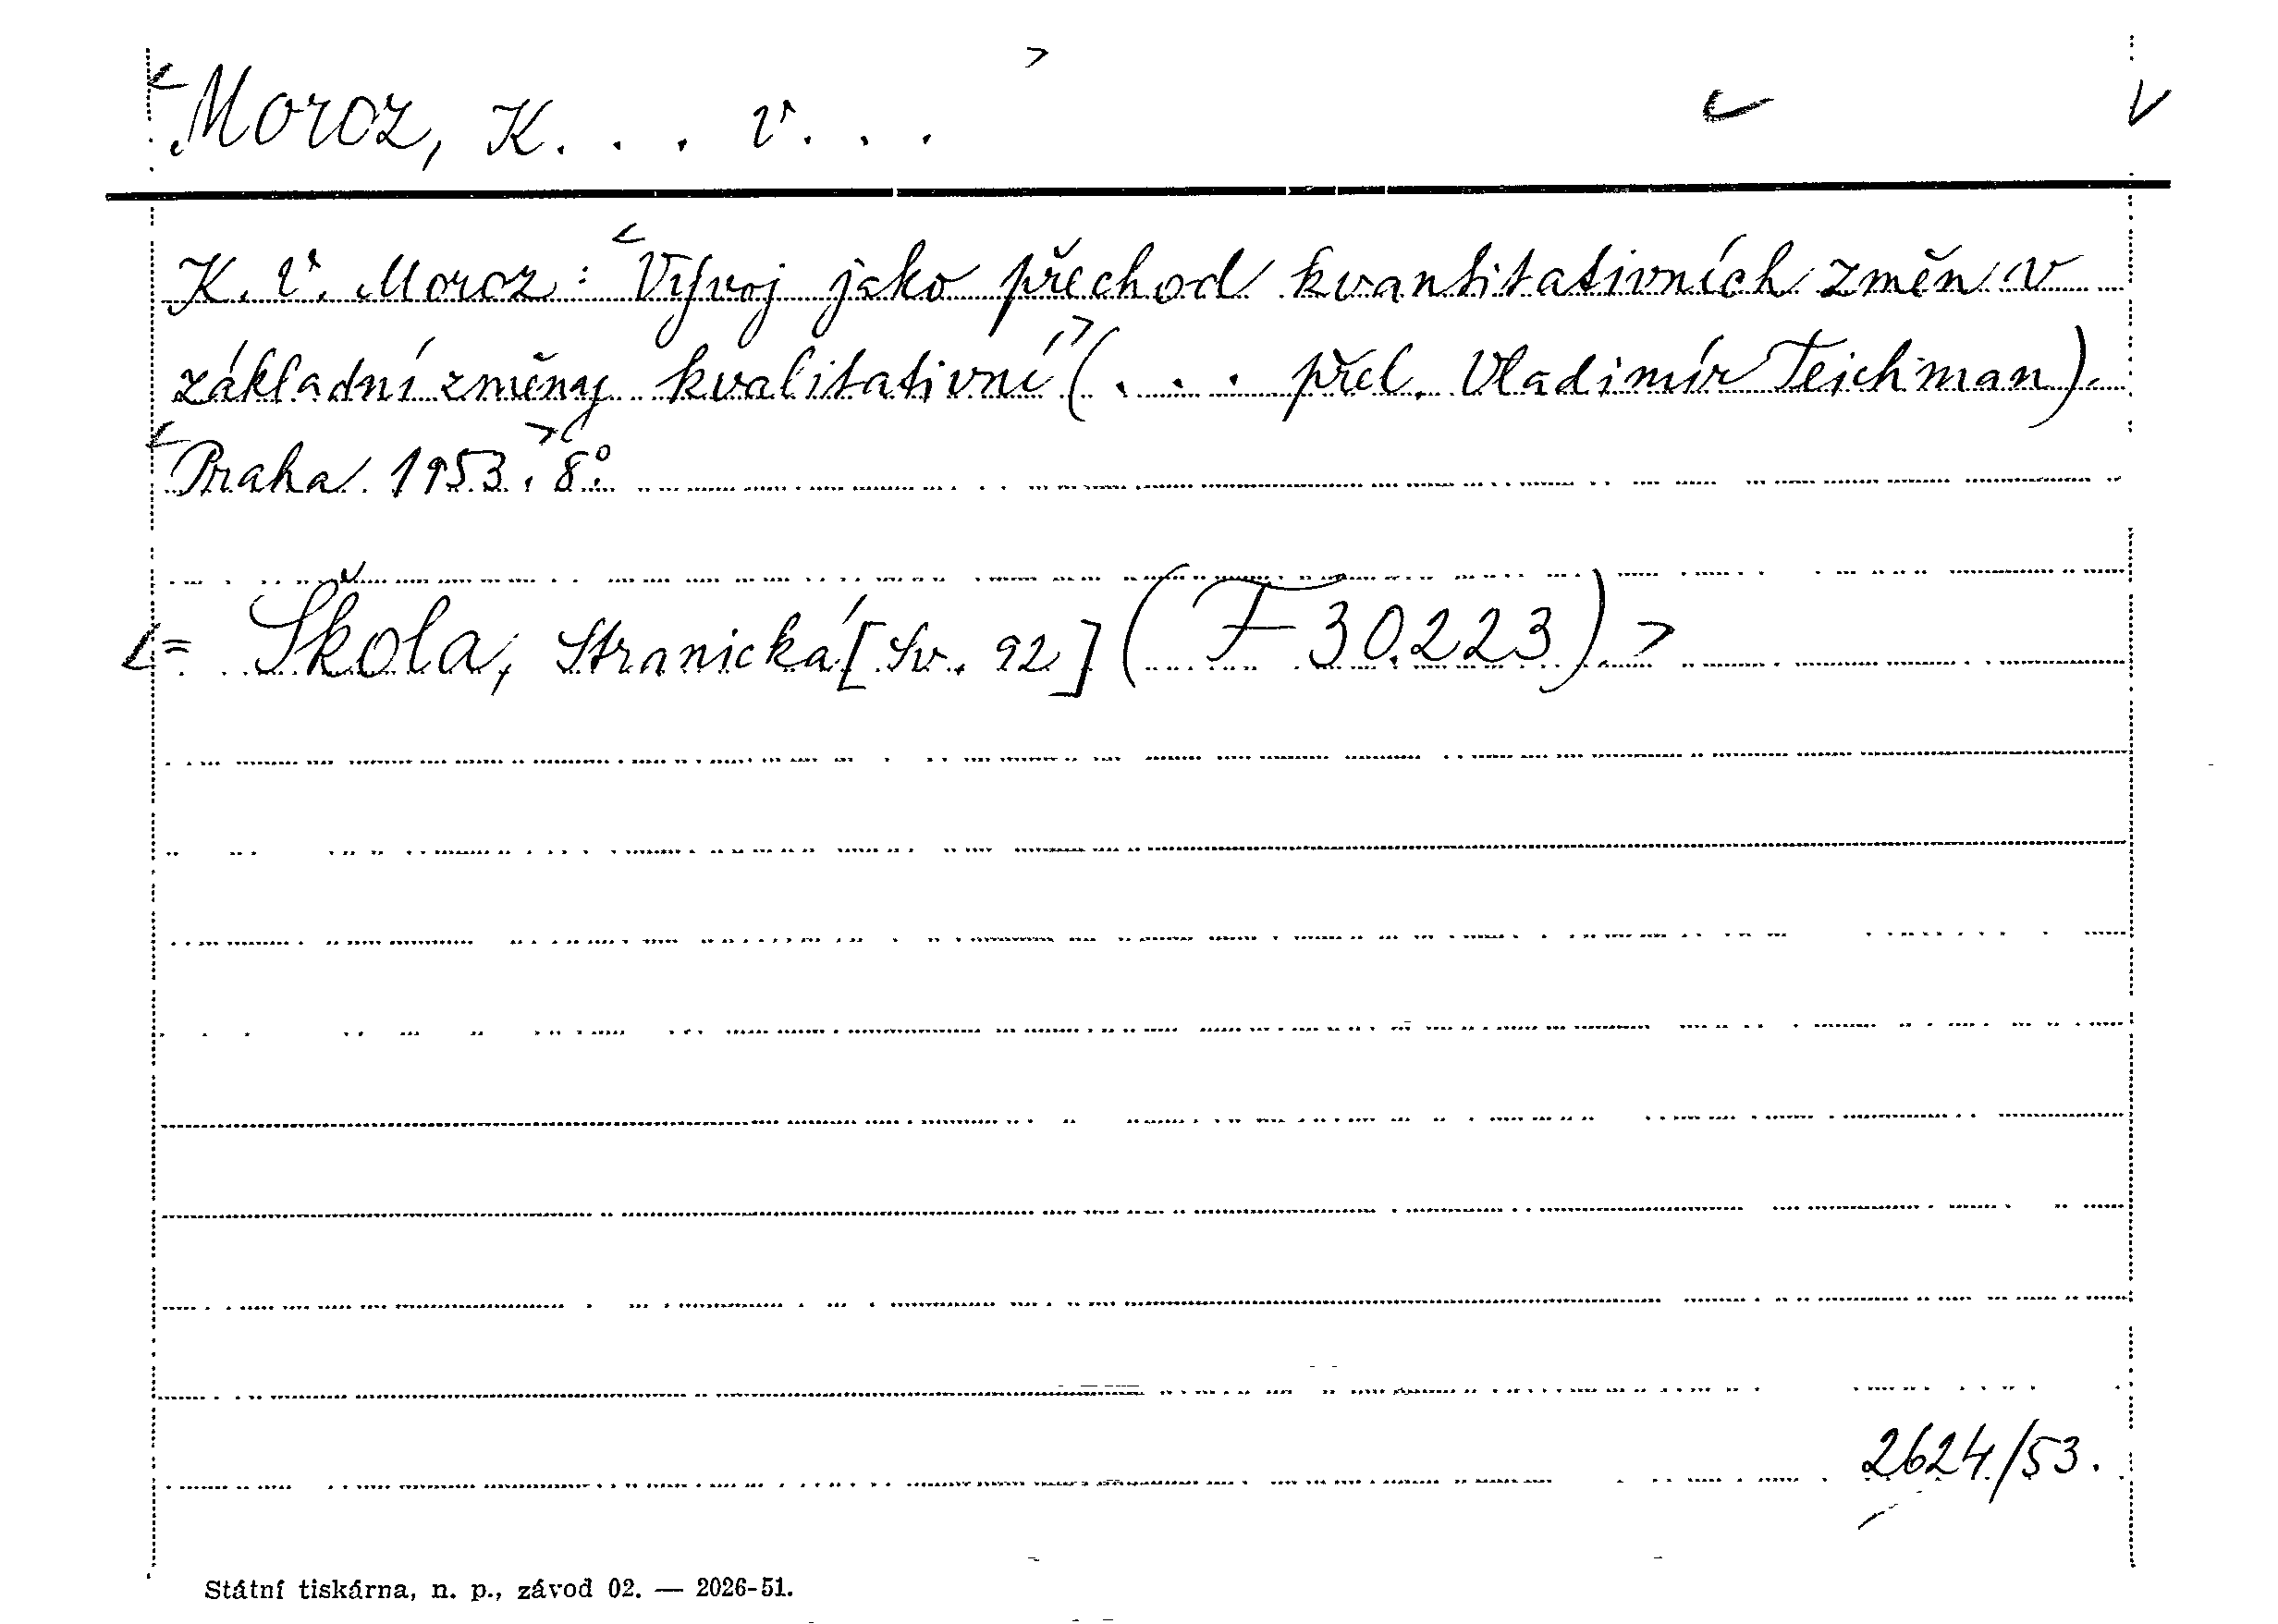 Moroz, K. . . V. . .
K. V. Moroz: Vývoj jako přechod kvantitativních změn v
základní změny kvalitativní (. . . přel. Vladimír Teichman).
Praha 1953. 8°.
= Škola, Stranická [Sv. 92] (F 30.223)
2624/53.
Státní tiskárna, n. p., závod 02. — 2026-51.